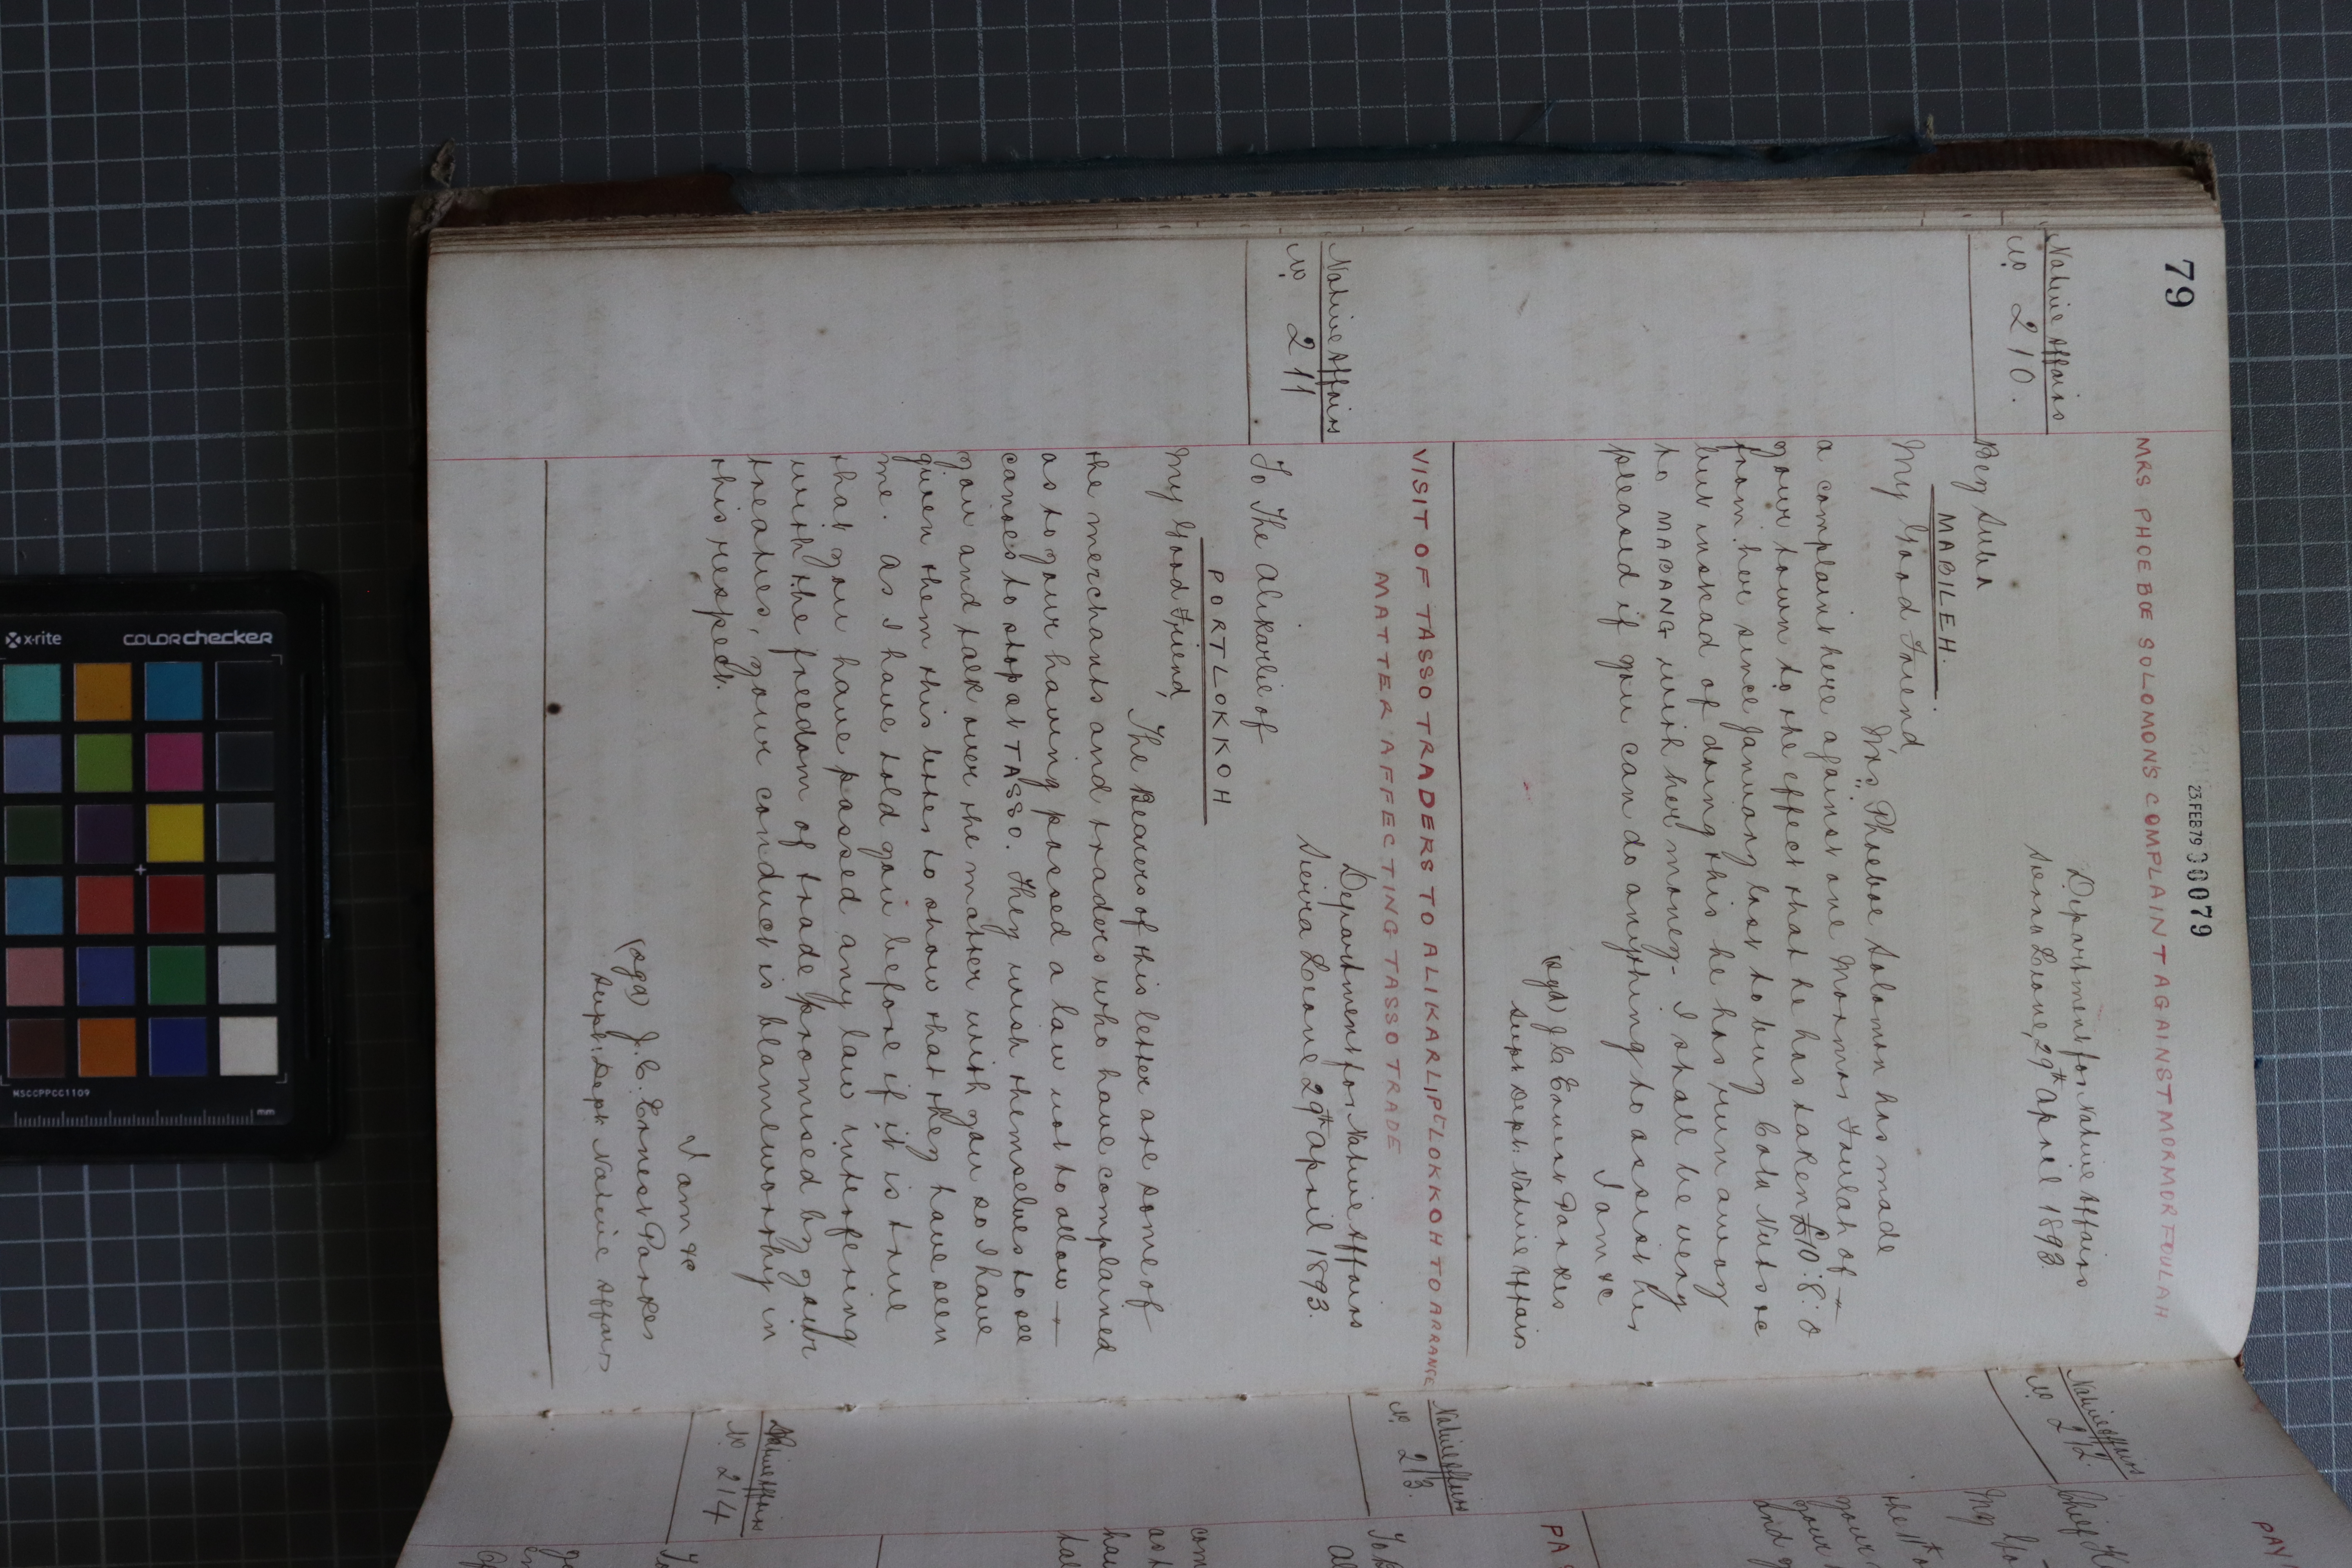 79
23 FEB 79 00079
MRS PHOEBOE SOLOMON'S COMPLAINT AGAINST MORMOR FOULAH
Native Affairs
No 210.
Department for Native Affairs
Sierra Leone, 29th April 1893
Bey Suba
MABILEH.
My Good Friend,
Mrs Phoeboe Solomon has made
a complaint here against one Mormor Foulah of
your town to the effect that he has taken £10.8.0
from her since January last to buy Cola Nuts &c
but instead of doing this he has run away
to MABANG with her money - I shall be very
pleased if you can do anything to assist her
I am &c
(sgd) J. C. Ernest Parkes
Supt Dept. Native Affairs
VISIT OF TASSO TRADERS TO ALIKARLI P'LOKKOH TO ARRANGE
MATTER AFFECTING TASSO TRADE
Native Affairs
No 211
Department for Native Affairs
Sierra Leone 29th April 1893.
To The Alikarlie of
PORTLOKKOH
My Good Friend,
The Bearers of this letter are some of
the merchants and traders who have complained
as to your having passed a law not to allow
canoes to stop at TASSO. They wish themselves to see
you and talk over the matter with you so I have
given them this letter to show that they have seen
me. As I have told you before if it is true
that you have passed any law interfering
with the freedom of trade promised by your
treaties, your conduct is blameworthy in
this respect.
I am &c
(sgd) J. C. Ernest Parkes
Supt. Dept. Native Affairs
Native Affairs
No 212.
Chief
My Go
the 1st
your
your
and
PAY
Native Affairs
No 213.
PA
To
com
as
hav
tal
Native Affairs
No 214
To